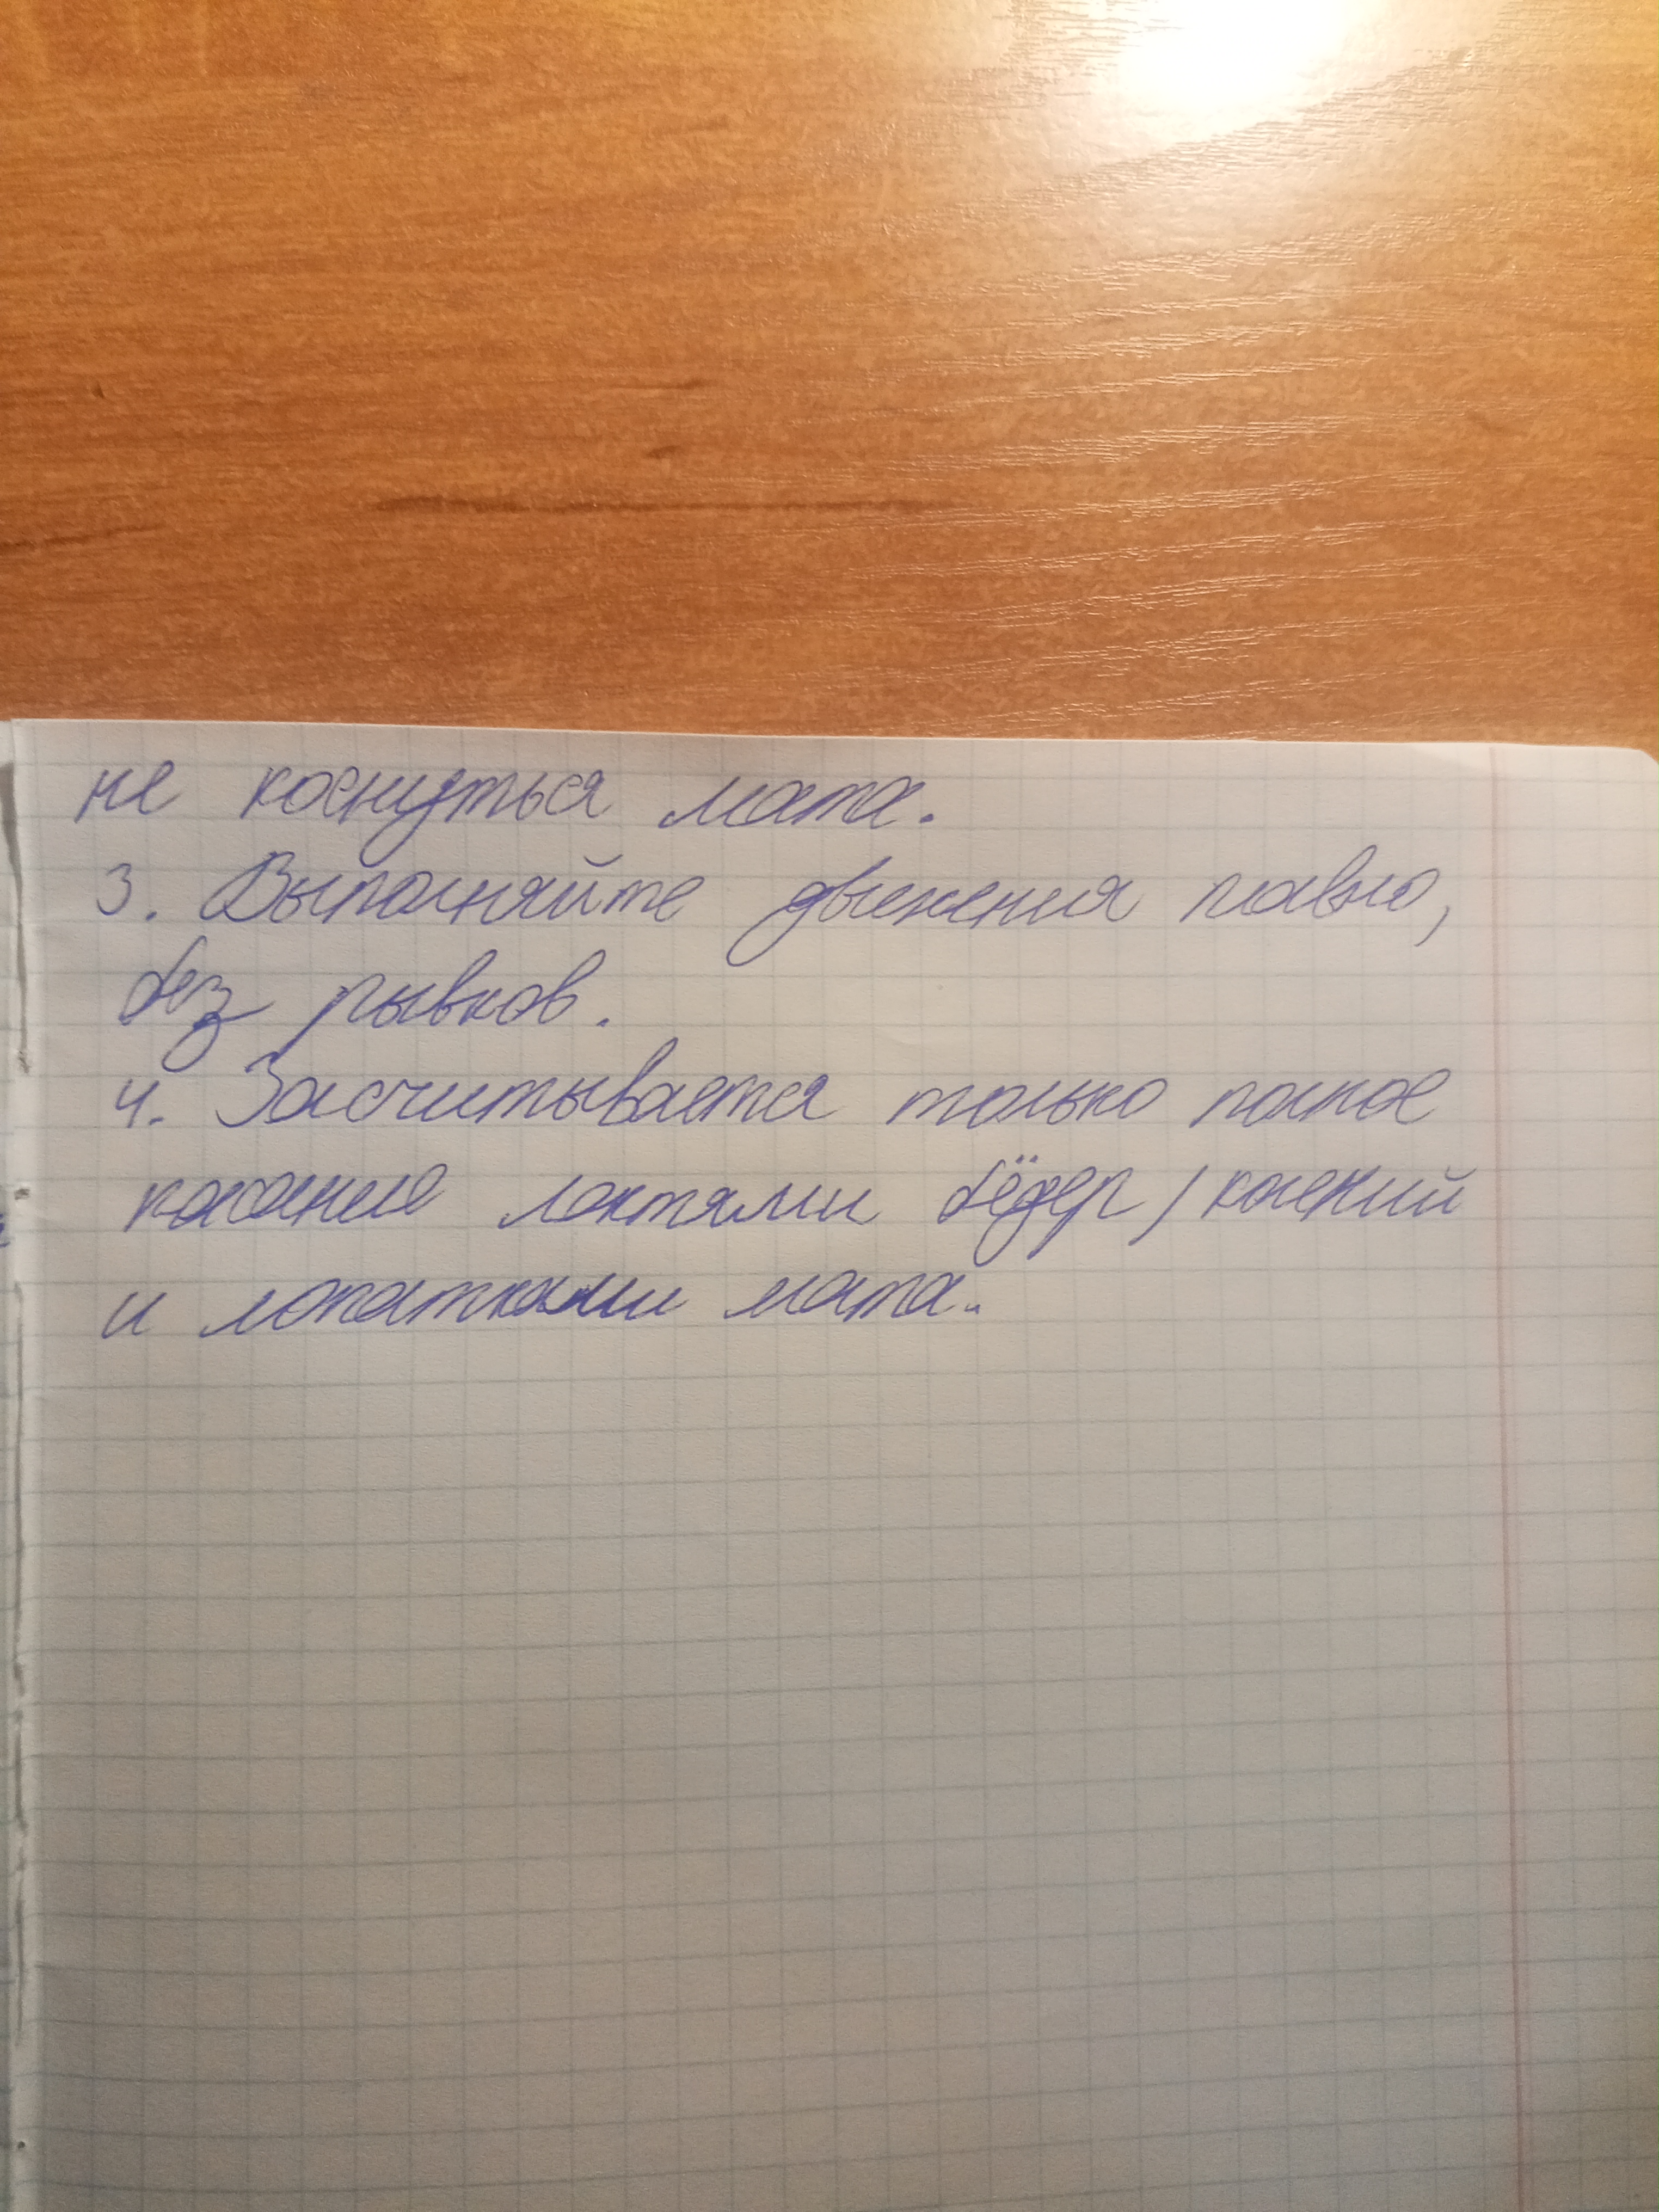 не коснуться мата.
3. Выполняйте движения плавно,
без рывков.
4. Засчитывается только полное
касание локтями бёдер / колений
и лопатками мата.